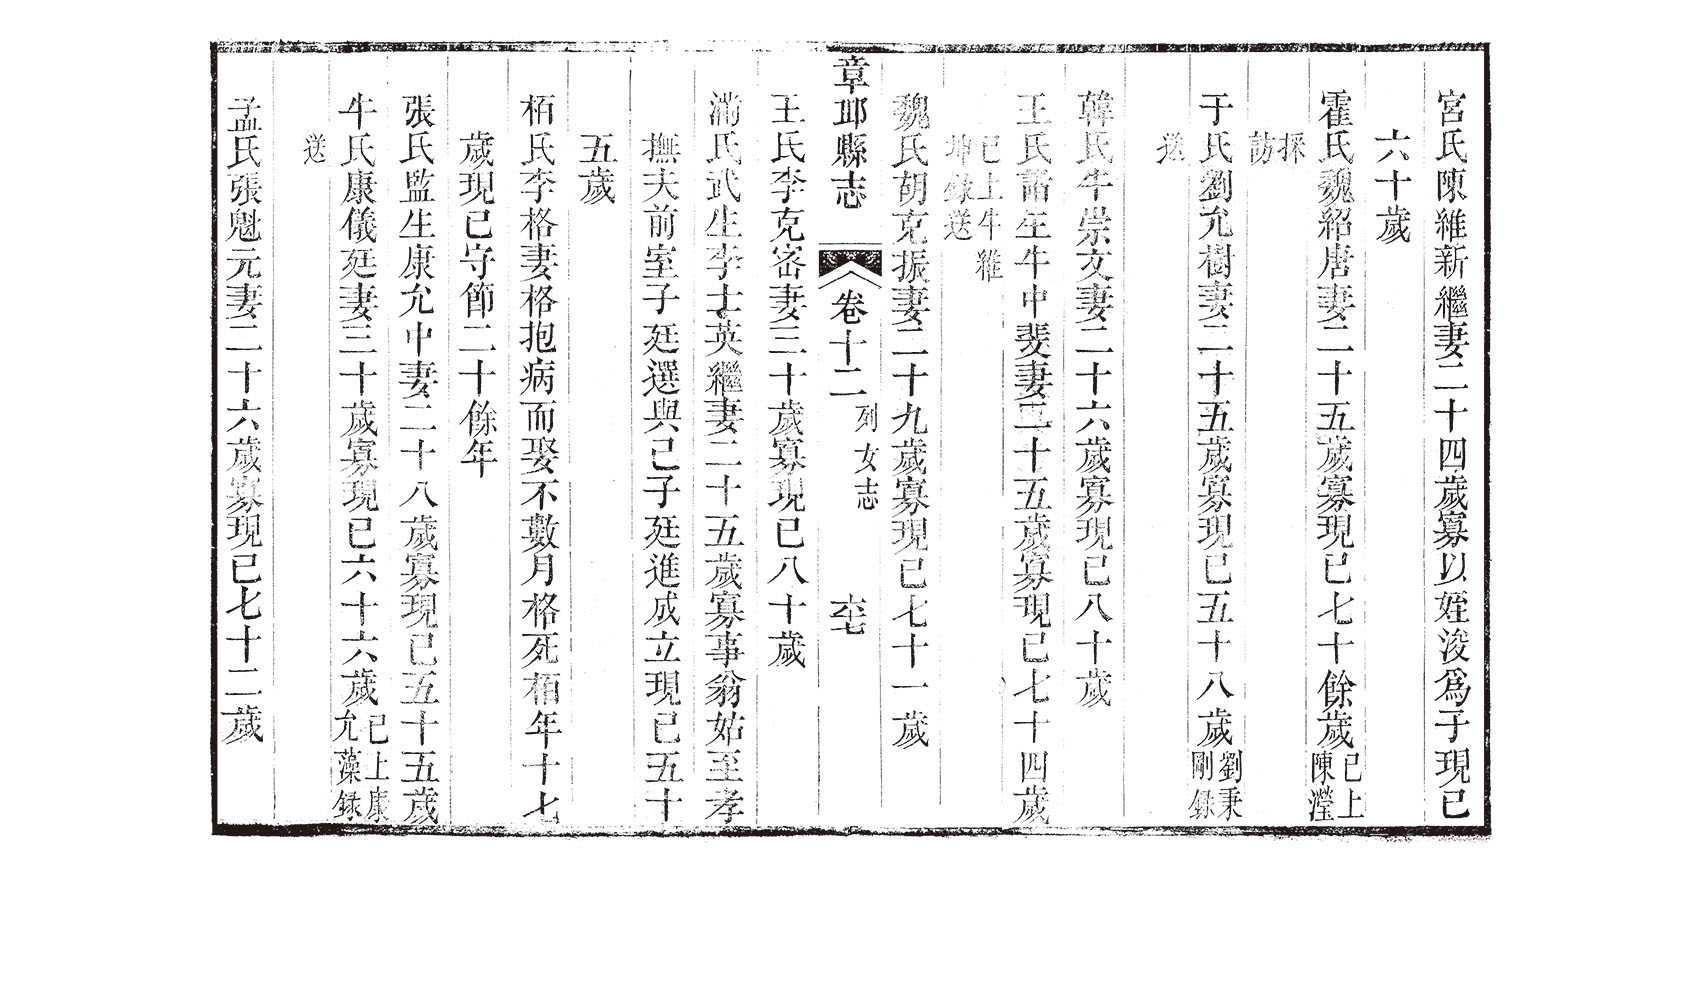 宮氏陳維新繼妻二十四歲寡以姪浚爲子現已
六十歲
霍氏魏紹唐妻二十五歲寡現已七十餘歲已上陳瀅
採訪
于氏劉允樹妻二十五歲寡現已五十八歲劉秉剛録
送
韓氏牛崇文妻二十六歲寡現已八十歲
王氏諸生牛中斐妻二十五歲寡現已七十四歲
已上牛維坤録送
魏氏胡克振妻二十九歲寡現已七十一歲
章邱縣志 卷十二 列女志 六七
王氏李克密妻三十歲寡現已八十歲
滿氏武生李士英繼妻二十五歲寡事翁姑至孝
撫夫前室子廷選與己子廷進成立現已五十
五歲
栢氏李格妻格抱病而娶不數月格死栢年十七
歲現已守節二十餘年
張氏監生康允中妻二十八歲寡現已五十五歲
牛氏康儀廷妻三十歲寡現已六十六歲已上康允藻録
送
孟氏張魁元妻二十六歲寡現已七十二歲